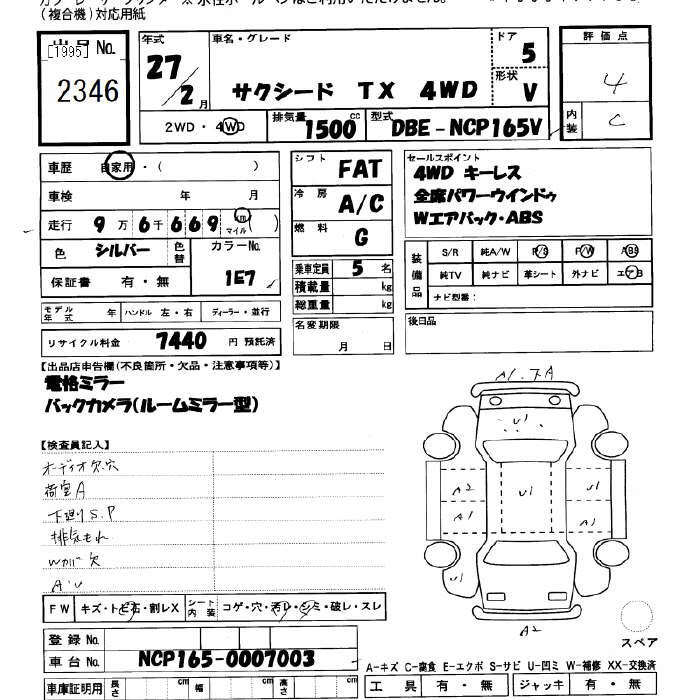 (複合機)対応用紙
[1995] No.
2346
年式
27
/2月
車名・グレード
サクシード TX 4WD
ドア 5
形状 V
2WD・4WD
排気量 1500 cc
型式 DBE-NCP165V
評価点
4
内装 C
車歴 自家用・( )
車検 年 月
走行 9万6千669 km マイル ( )
色 シルバー 色替 カラーNo.
保証書 有・無 1E7
モデル年式 年 ハンドル 左・右 ディーラー・並行
リサイクル料金 7440 円 預託済
シフト FAT
冷房 A/C
燃料 G
乗車定員 5 名
積載量 kg
総重量 kg
名変期限
月 日
セールスポイント
4WD キーレス
全席パワーウインドゥ
Wエアバック・ABS
装備品 S/R 純A/W P/S P/W ABS
純TV 純ナビ 革シート 外ナビ エアB
ナビ型番:
後日品
【出品店申告欄(不良箇所・欠品・注意事項等)】
電格ミラー
バックカメラ(ルームミラー型)
【検査員記入】
オーディオ欠穴
荷室A
下廻りS.P
排気もれ
Wカバー欠
A・U
FW キズ・トビ石・割レX シート内装 コゲ・穴・汚レ・シミ・破レ・スレ
A1
U1
A2 U1 U1
A1 A1
U1
A2
スペア
登録 No.
車台 No. NCP165-0007003
A-キズ C-腐食 E-エクボ S-サビ U-凹ミ W-補修 XX-交換済
車庫証明用 長さ cm 幅 cm 高さ cm
工具 有・無 ジャッキ 有・無